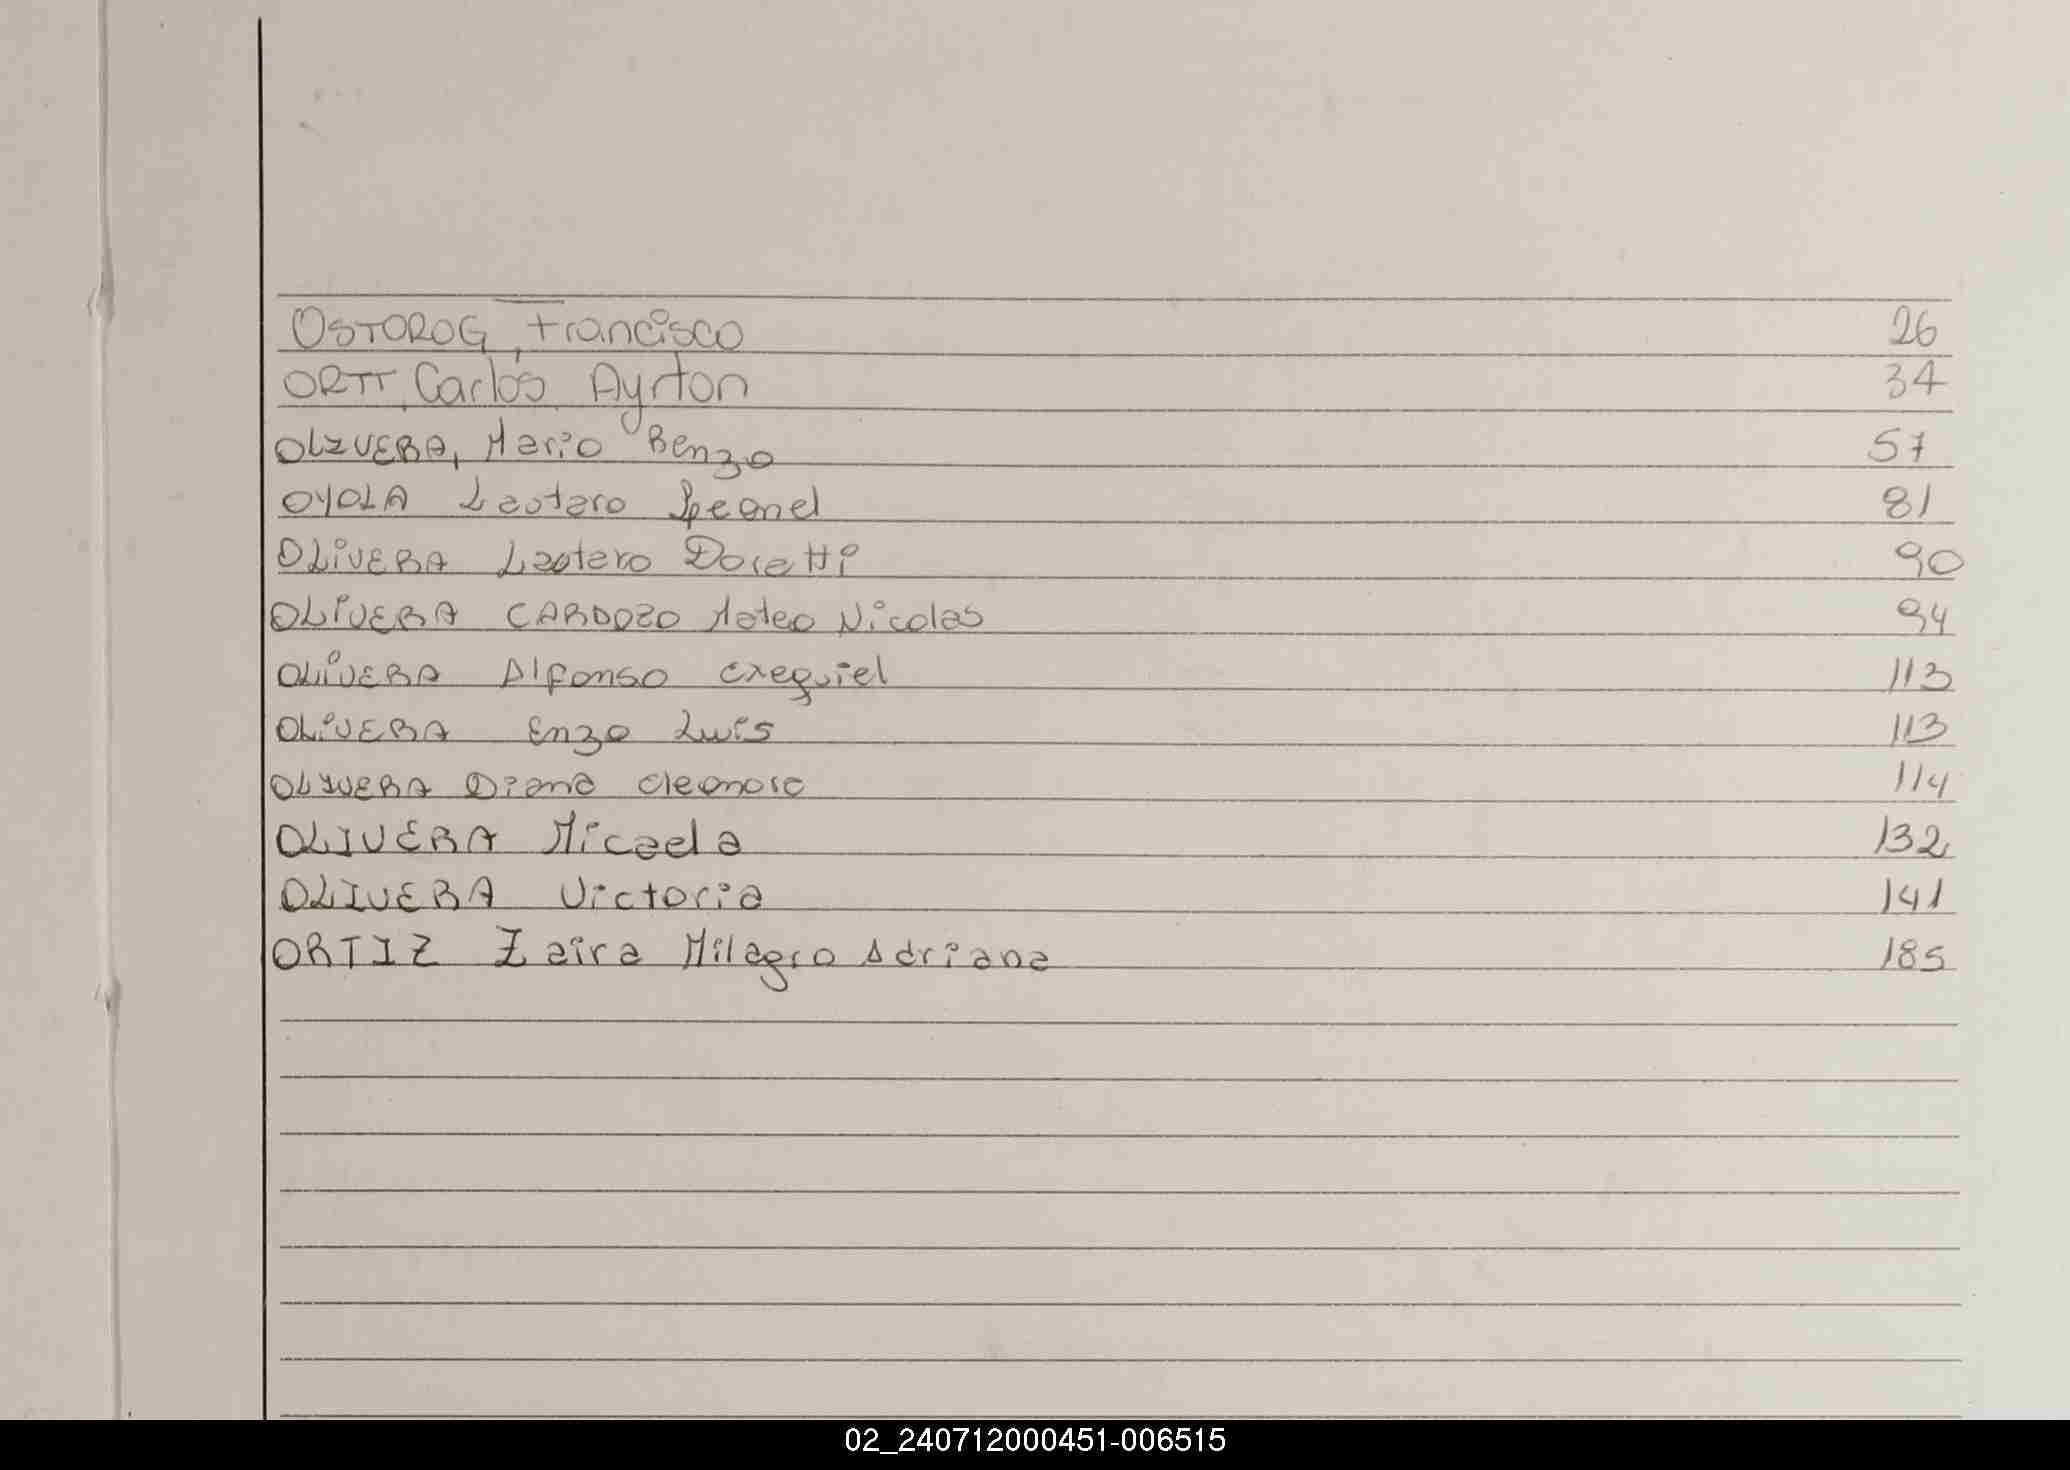 OSTOROG, Francisco 26
ORTT, Carlos Ayrton 34
OLIVERA, Mario Benzo 57
OYOLA Lautaro 81
OLIVERA Lautaro Doretti 90
OLIVERA CARDOZO Mateo Nicolas 94
OLIVERA Alfonso Exequiel 113
OLIVERA Enzo Luis 113
OLIVERA Diana Eleonora 114
OLIVERA Micaela 132
OLIVERA Victoria 141
ORTIZ Zaira Milagro Adriana 185
02_240712000451-006515